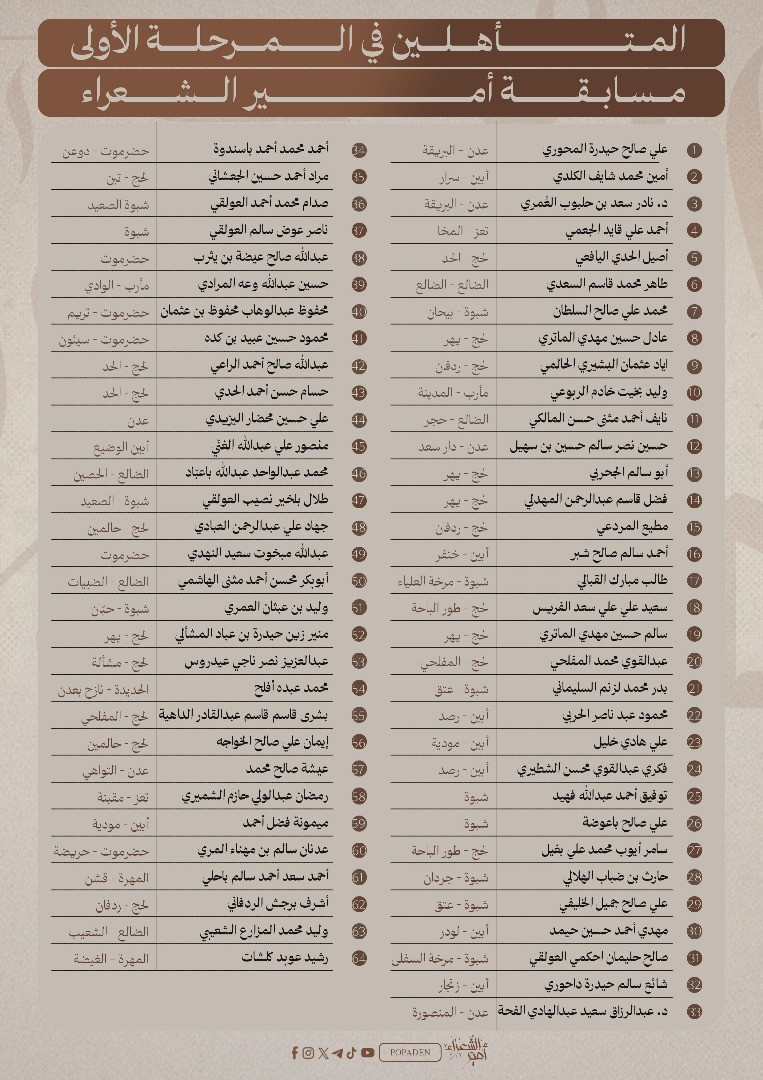 المتأهلين في المرحلة الأولى
مسابقة أمير الشعراء
1 علي صالح حيدرة المحوري عدن - البريقة
2 أمين محمد شايف الكلدي أبين - سرار
3 د. نادر سعد بن حلبوب العمري عدن - البريقة
4 أحمد علي قايد الجعمي تعز - المخا
5 أصيل الحدي اليافعي لحج - الحد
6 طاهر محمد قاسم السعدي الضالع - الضالع
7 محمد علي صالح السلطان شبوة - بيحان
8 عادل حسين مهدي الماتري لحج - يهر
9 اياد عثمان البشيري الحالمي لحج - ردفن
10 وليد بخيت خادم الربوعي مأرب - المدينة
11 نايف أحمد مثنى حسن المالكي الضالع - حجر
12 حسين نصر سالم حسين بن سهيل عدن - دار سعد
13 أبو سالم الجحربي لحج - يهر
14 فضل قاسم عبدالرحمن المهدلي لحج - يهر
15 مطيع المردعي لحج - ردفن
16 أحمد سالم صالح شبر أبين - خنفر
17 طالب مبارك القبالي شبوة - مرخة العلياء
18 سعيد علي علي سعد الفريس لحج - طور الباحة
19 سالم حسين مهدي الماتري لحج - يهر
20 عبدالقوي محمد المفلحي لحج - المفلحي
21 بدر محمد لزنم السليماني شبوة - عتق
22 محمود عبد ناصر الحربي أبين - رصد
23 علي هادي خليل أبين - مودية
24 فكري عبدالقوي محسن الشطيري أبين - رصد
25 توفيق أحمد عبدالله فهيد شبوة
26 علي صالح باعوضة شبوة
27 سامر أيوب محمد علي بغيل لحج - طور الباحة
28 حارث بن ضباب الهلالي شبوة - جردان
29 علي صالح جميل الخليفي شبوة - عتق
30 مهدي أحمد حسين حيمد أبين - لودر
31 صالح حليمان احكمي العولقي شبوة - مرخة السفلى
32 شائع سالم حيدرة داحوري أبين - زنجبار
33 د. عبدالرزاق سعيد عبدالهادي الفحة عدن - المنصورة
34 أحمد محمد أحمد باسندوة حضرموت - دوعن
35 مراد أحمد حسين الجعشاني لحج - تبن
36 صدام محمد أحمد العولقي شبوة الصعيد
37 ناصر عوض سالم العولقي شبوة
38 عبدالله صالح عيضة بن يثرب حضرموت
39 حسين عبدالله وعه المرادي مأرب - الوادي
40 محفوظ عبدالوهاب محفوظ بن عثمان حضرموت - تريم
41 محمود حسين عبيد بن كده حضرموت - سيئون
42 عبدالله صالح أحمد الراعي لحج - الحد
43 حسام حسن أحمد الحدي لحج - الحد
44 علي حسين محضار اليزيدي عدن
45 منصور علي عبدالله الغثي أبين الوضيع
46 محمد عبدالواحد عبدالله باعباد الضالع - الحصين
47 طلال بلخير نصيب العولقي شبوة - الصعيد
48 جهاد علي عبدالرحمن العبادي لحج - حالمين
49 عبدالله مبخوت سعيد النهدي حضرموت
50 أبوبكر محسن أحمد مثنى الهاشمي الضالع - الضبيات
51 وليد بن عبثان العمري شبوة - حبّان
52 منير زين حيدرة بن عباد المشألي لحج - يهر
53 عبدالعزيز نصر ناجي عيدروس لحج - مشألة
54 محمد عبده أفلح الحديدة - نازح بعدن
55 بشرى قاسم قاسم عبدالقادر الداهية لحج - المفلحي
56 إيمان علي صالح الخواجه لحج - حالمين
57 عيشة صالح محمد عدن - التواهي
58 رمضان عبدالولي حازم الشميري تعز - مقبنة
59 ميمونة فضل أحمد أبين - مودية
60 عدنان سالم بن مهناء المري حضرموت - حريضة
61 أحمد سعد أحمد سالم باحلي المهرة - قشن
62 أشرف برجش الردفاني لحج - ردفان
63 وليد محمد المزارع الشعيبي الضالع - الشعيب
64 رشيد عوبد كلشات المهرة - الغيضة
أمير الشعراء POPADEN